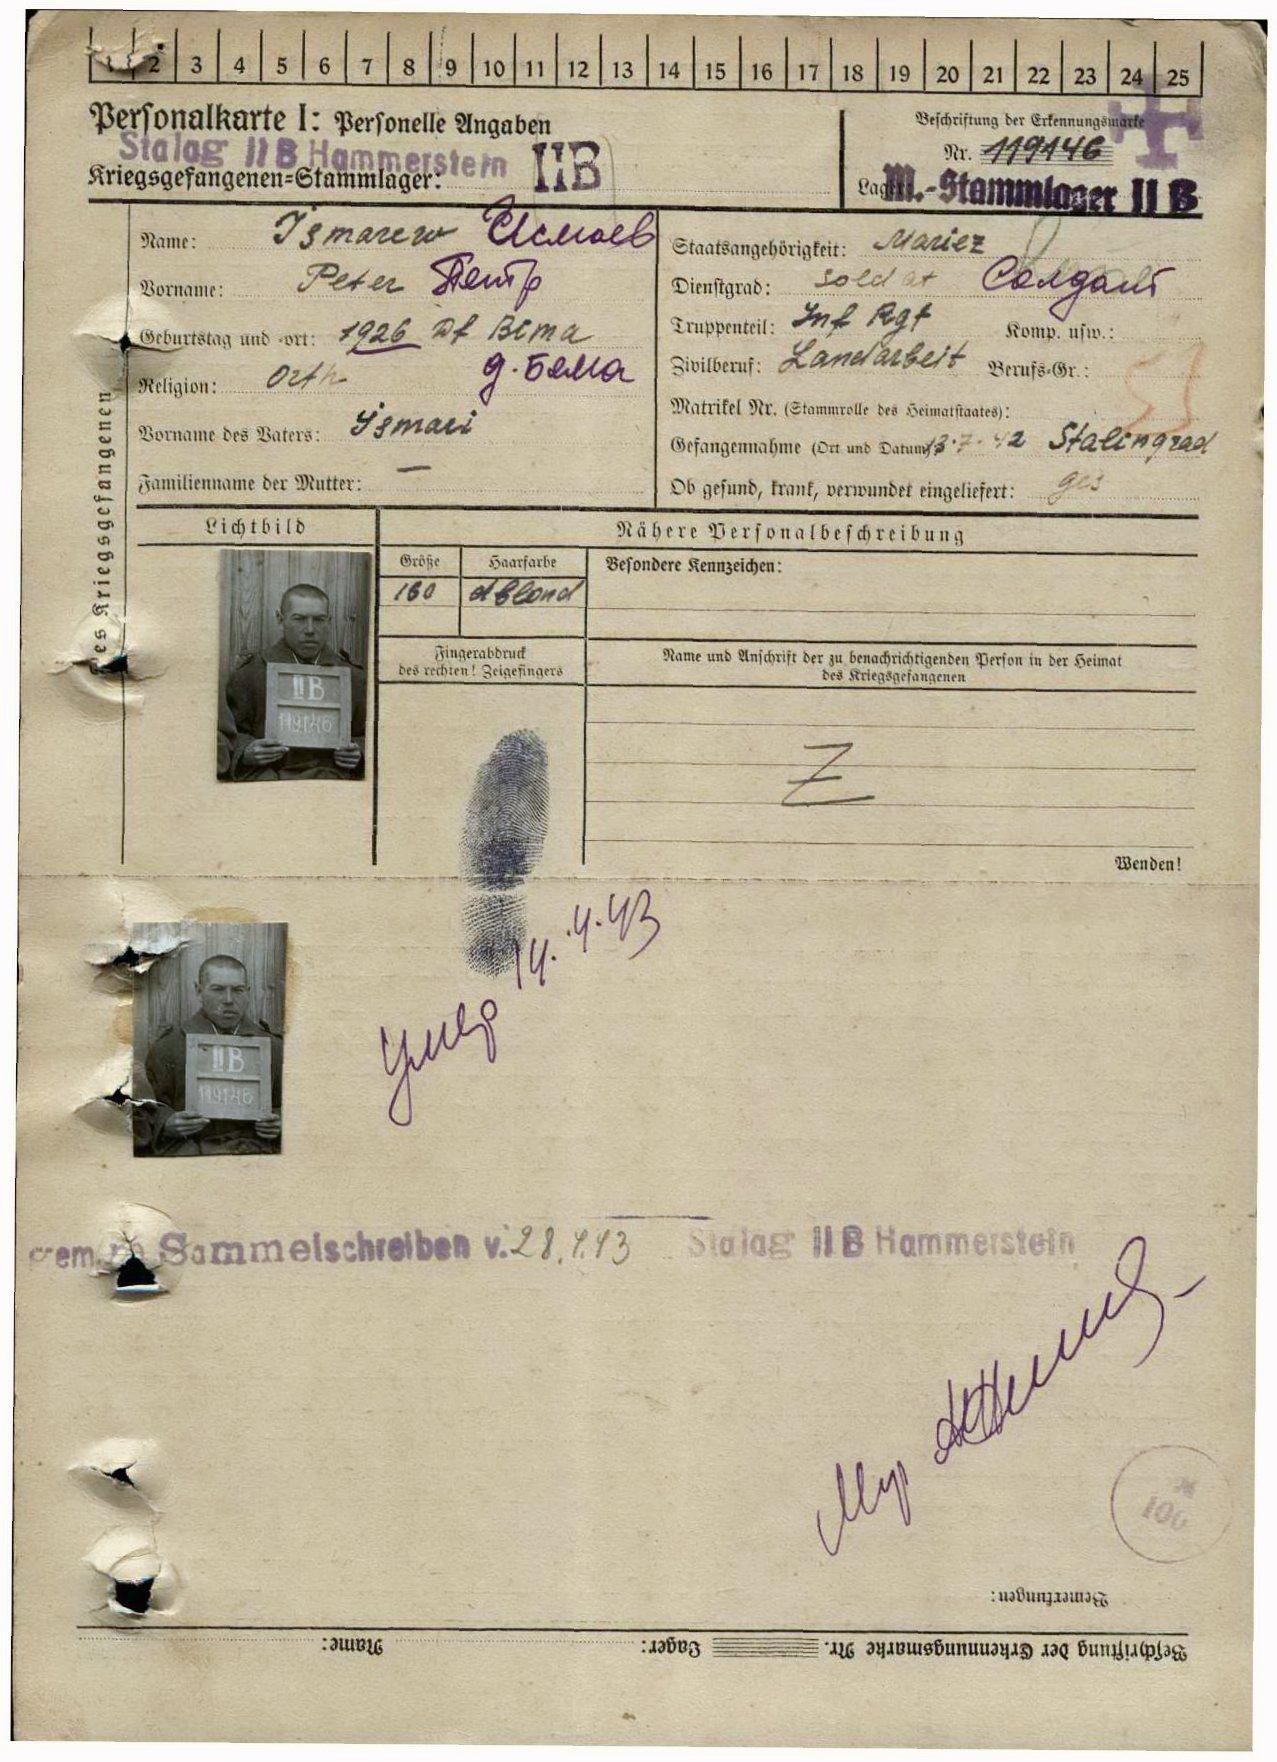 1 2 3 4 5 6 7 8 9 10 11 12 13 14 15 16 17 18 19 20 21 22 23 24 25
Personalkarte I: Personelle Angaben
Stalag II B Hammerstein
Kriegsgefangenen-Stammlager: II B
Beschriftung der Erkennungsmarke
Nr. 119146
Lager: M.-Stammlager II B
Des Kriegsgefangenen
Name: Ismarew
Vorname: Peter Петр
Geburtstag und -ort: 1926 Df Bema
Religion: Orth д. Бема
Vorname des Vaters: Ismari
Familienname der Mutter: —
Staatsangehörigkeit: Mariez
Dienstgrad: Soldat Солдат
Truppenteil: Inf Rgt Komp. usw.:
Zivilberuf: Landarbeit Berufs-Gr.:
Matrikel Nr. (Stammrolle des Heimatstaates):
Gefangennahme (Ort und Datum): 13.7.42 Stalingrad
Ob gesund, krank, verwundet eingeliefert: ges
Lichtbild
Nähere Personalbeschreibung
Größe Haarfarbe Besondere Kennzeichen:
160 dblond
Fingerabdruck
des rechten! Zeigefingers
Name und Anschrift der zu benachrichtigenden Person in der Heimat
des Kriegsgefangenen
II B
119146
Z
Wenden!
Умер 14.4.43
II B
119146
Sammelschreiben v. 28.4.43 Stalag II B Hammerstein
100
Bemerkungen:
Beschriftung der Erkennungsmarke Nr. Lager: Name: